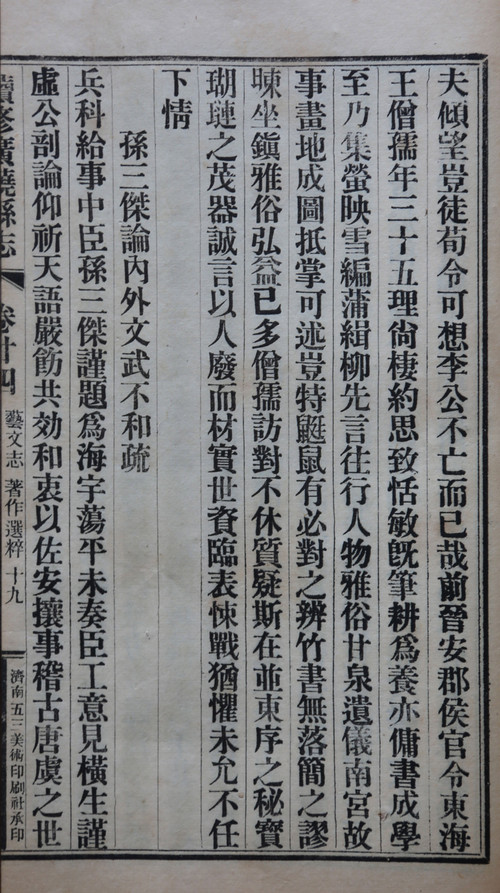 夫傾望豈徒荀令可想李公不亡而已哉前晉安郡侯官令東海
王僧孺年三十五理尙棲約思致恬敏旣筆耕爲養亦傭書成學
至乃集螢映雪編蒲緝柳先言往行人物雅俗甘泉遺儀南宮故
事畫地成圖抵掌可述豈特鼮鼠有必對之辨竹書無落簡之謬
暕坐鎭雅俗弘益已多僧孺訪對不休質疑斯在並東序之秘寶
瑚璉之茂器誠言以人廢而材實世資臨表悚戰猶懼未允不任
下情
孫三傑論內外文武不和疏
兵科給事中臣孫三傑謹題爲海宇蕩平未奏臣工意見橫生謹
虛公剖論仰祈天語嚴飭共効和衷以佐安攘事稽古唐虞之世
續修廣饒縣志 卷十四 藝文志 著作選粹 十九
濟南五三美術印刷社承印